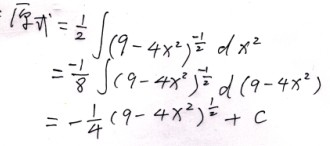 : 原式 = 1/2 ∫ (9-4x²)^(-1/2) d x²
= -1/8 ∫ (9-4x²)^(-1/2) d (9-4x²)
= -1/4 (9-4x²)^(1/2) + C